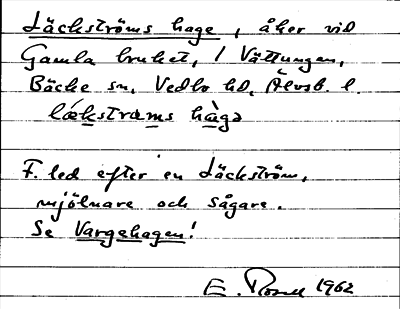 Läckströms hage, åker vid
Gamla bruket, / Vättungen,
Bäcke sn, Vedbo hd, Älvsb. l.
lækstrœms hàgə
F. led efter en Läckström,
mjölnare och sågare.
Se Vargehagen!
E. 1962